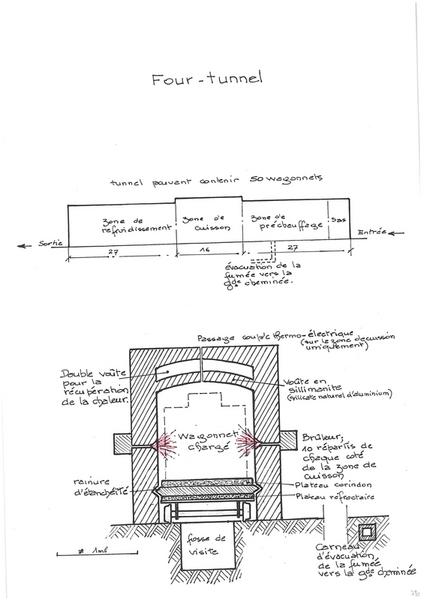 Four-tunnel
tunnel pouvant contenir 50 wagonnets
zone de
refroidissement
zone de
cuisson
zone de
préchauffage
Sas
Sortie
Entrée
27
16
27
évacuation de la
fumée vers la
gde cheminée.
Passage couple thermo-électrique
(sur la zone de cuisson
uniquement)
Double voûte
pour la
récupération
de la chaleur.
Voûte en
Sillimanite
(silicate naturel d'aluminium)
Wagonnet
chargé
Brûleur,
10 répartis de
chaque côté
de la zone de
cuisson
rainure
d'étanchéité
Plateau corindon
Plateau réfractaire
fosse de
visite
Carneau
d'évacuation
de la fumée
vers la gde cheminée